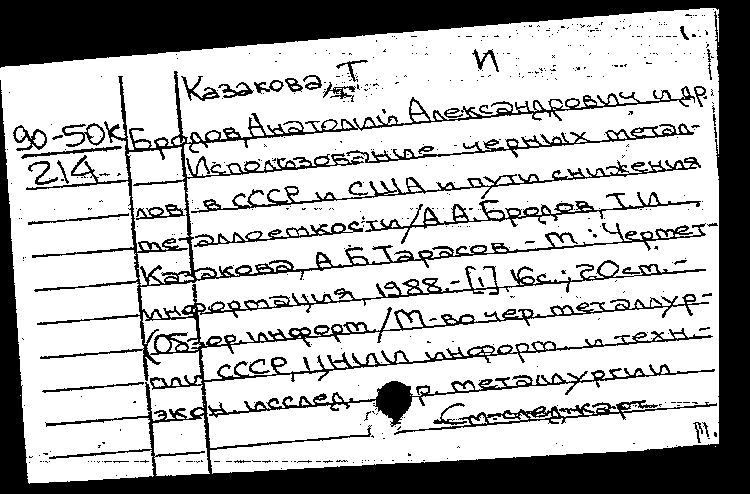 1.
Казакова, Т И
90-50К Бродов, Анатолий Александрович и др
214 Использование черных метал-
лов в СССР и США и пути снижения
металлоемкости / А.А. Бродов, Т.И.
Казакова, А.Б. Тарасов. - М.: Чермет-
информация, 1988. - [1], 16с.; 20см. -
(Обзор. информ. / М-во чер. металлур-
гии СССР, ЦНИИ информ. и техн.-
экон. исслед. р. металлургии.
См. след. карт